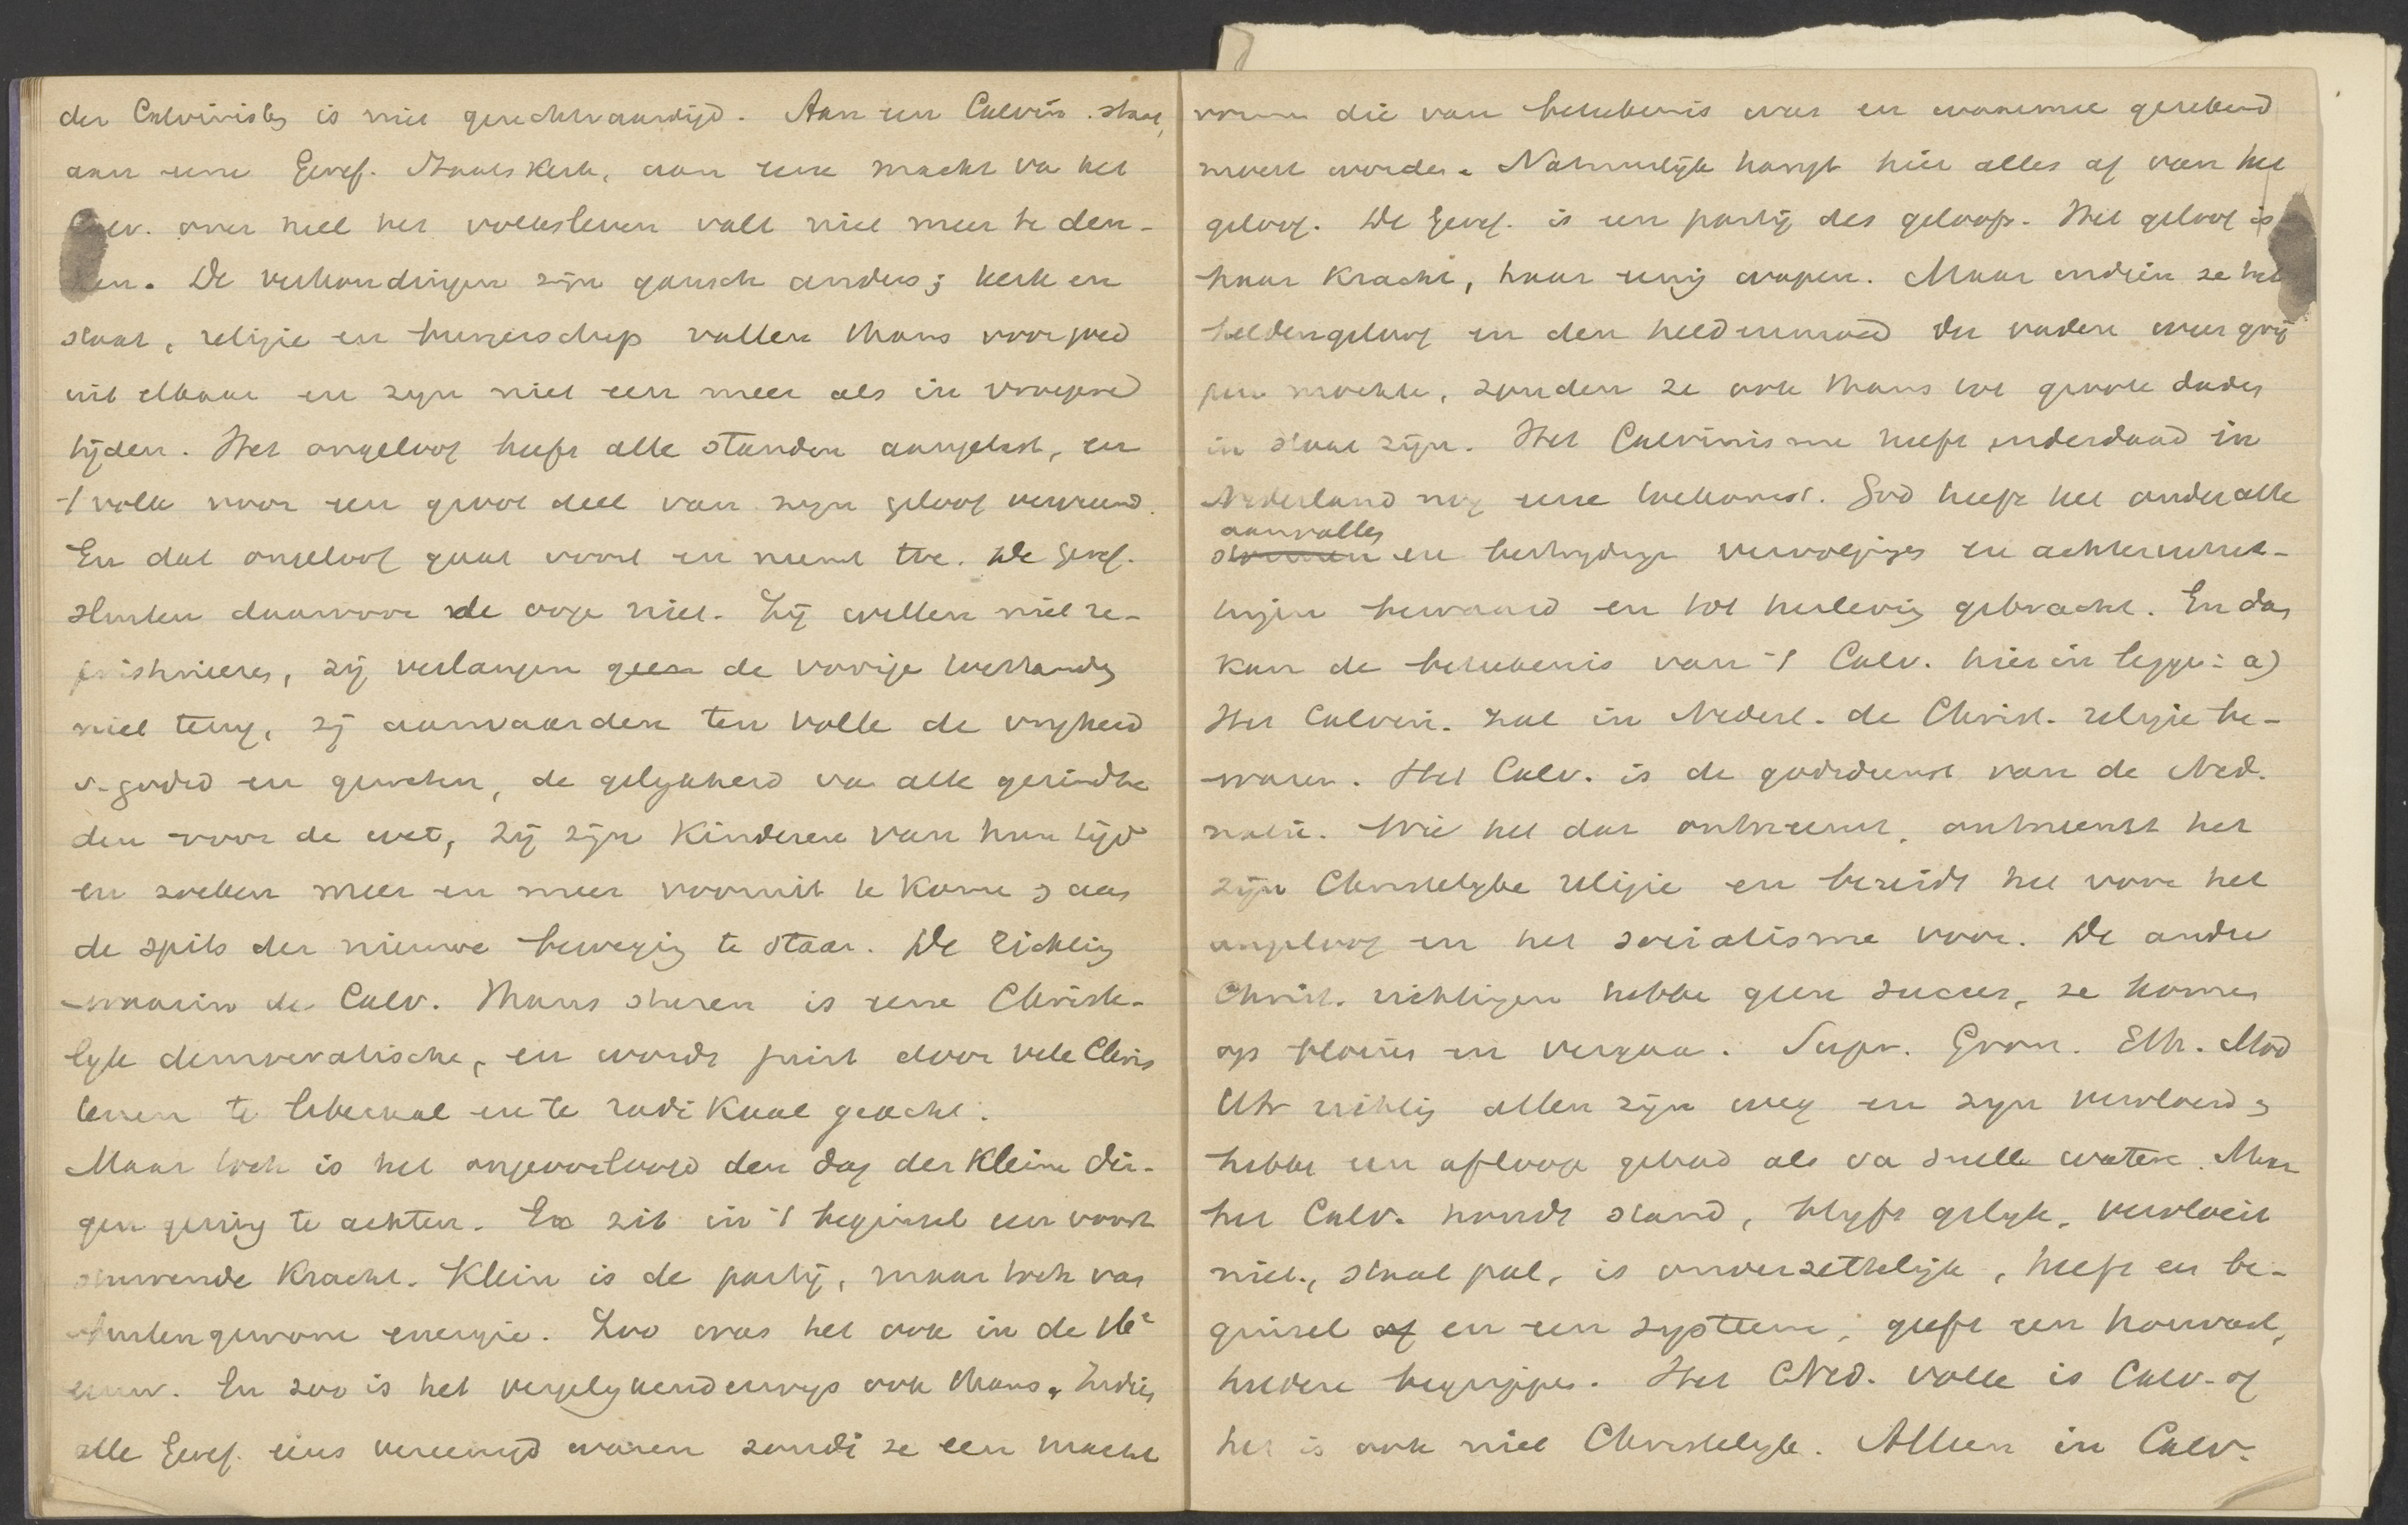 der Calvinisten is niet gerechtvaardigd. Aan een Calvin. staat,
aan eene Geref. Staatskerk, aan eene macht va het
Calv. over heel het volksleven valt niet meer te den-
ken. De verhoudingen zijn gansch anders; kerk en
staat, religie en burgerschap vallen thans voorgoed
uit elkaar en zijn niet een meer als in vroegere
tijden. Het ongeloof heeft alle standen aangetast, en
't volk voor een groot deel van zijn geloof vervreemd.
En dat ongeloof gaat voort en neemt toe. De Geref.
sluiten daarvoor de ooge niet. Zij willen niet re-
pristineeren, zij verlangen geen de vorige toestanden
niet terug, zij aanvaarden ten volle de vrijheid
v. godsd en geweten, de gelijkheid va alle gezindhe
den voor de wet, zij zijn Kinderen van hun tijd
en zoeken meer en meer vooruit te kome & aan
de spits der nieuwe beweging te staan. De richting
waarin de Calv. thans sturen is eene Christe-
lijk democratische, en wordt juist door vele Chris
tenen te liberaal en te radikaal geacht.
Maar toch is het ongeoorloofd den dag der kleine din-
gen gering te achten. Er zit in 't beginsel een voort
stuwende Kracht. Klein is de partij, maar toch van
buitengewone energie. Zoo was het ook in de 16e
eeuw. En zoo is het vergelijkenderwijs ook thans. Indien
alle Geref. eens vereenigd waren zoude ze een macht
vorme die van beteekenis was en waarmee gerekend
moest worden. Natuurlijk hangt hier alles af van het
geloof. De Geref. is een partij des geloofs. Het geloof is
haar kracht, haar eenig wapen. Maar indien ze het
heldengeloof en den heldenmoed der vaderen weer grij
pen mochte, zouden ze ook thans tot groote daden
in staat zijn. Het Calvinisme heeft inderdaad in
Nederland nog eene toekomst. God heeft het onder alle
aanvallen
stormen en bestrijdinge vervolginge en achteruitzet-
tingen bewaard en tot herleving gebracht. En dan
kan de beteekenis van 't Calv. hierin legge: a)
Het Calvin. zal in Nederl. de Christ. religie be-
waren. Het Calv. is de godsdienst van de Ned.
natie. Wie het dat ontneemt, ontneemt het
zijn Christelijke religie en bereidt het voor het
ongeloof en het socialisme voor. De andere
Christ. richtingen hebbe geen succes, ze komen
op bloeien en vergaa. Supr. Gron. Eth. Mod
Utr richting allen zijn weg en zijn vervloeid &
hebbe een afloop gehad als va snelle wateren. Maar
het Calv. houdt stand, blijft gelijk, vervloeit
niet, staat pal, is onverzettelijk, heeft een be-
ginsel of en een systeem; geeft een houvast,
heldere begrippen. Het Ned. volk is Calv. of
het is ook niet Christelijk. Alleen in Calv.